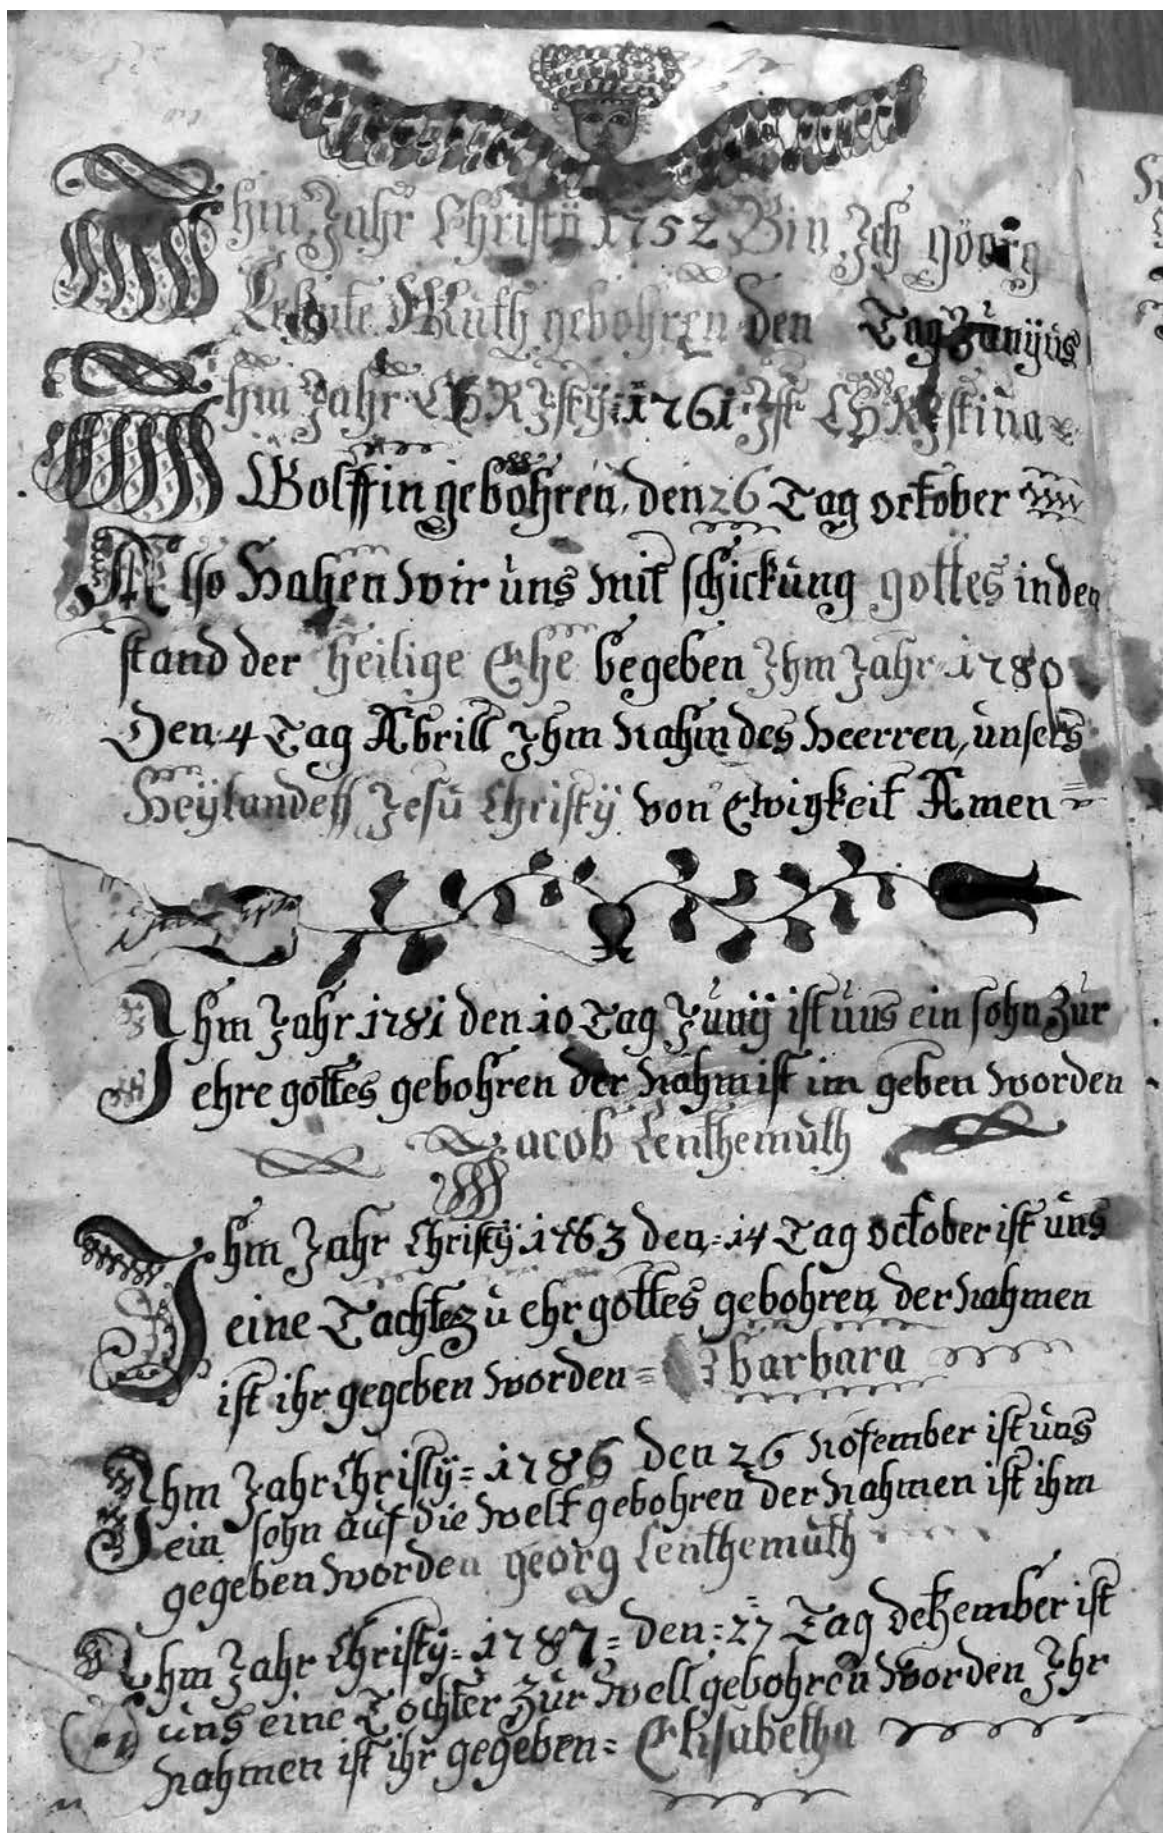 Ihm Jahr Christÿ 1752 Bin Ich göorg
Muth gebohren den Tag Junÿus
Ihm Jahr CHRIstÿ 1761 Ist CHRIstina
Wolffin gebohren, den 26 Tag october
Also Haben wir uns mit schickung gottes in den
stand der Heilige Ehe begeben Ihm Jahr 1780
Den 4 Tag Abrill Ihm Nahm des Heerren, unsers
Heÿlandeß Jesu Christÿ von Ewigkeit Amen =
Ihm Jahr 1781 den 10 Tag Junÿ ist uns ein sohn Zur
ehre gottes gebohren der Nahm ist im geben worden
Jacob Lenthemuth
Ihm Jahr Christÿ 1783 den = 14 Tag october ist uns
eine Tachte zu ehr gottes gebohren der Nahmen
ist ihr gegeben worden = barbara
Ihm Jahr Christÿ = 1786 den 26 Nofember ist uns
ein sohn auf die welt gebohren der Nahmen ist ihm
gegeben worden georg Lenthemuth
Ihm Jahr Christÿ = 1787 = den = 27 Tag detzember ist
uns eine Tochter Zur well gebohren worden Ihr
Nahmen ist ihr gegeben = Elisabetha